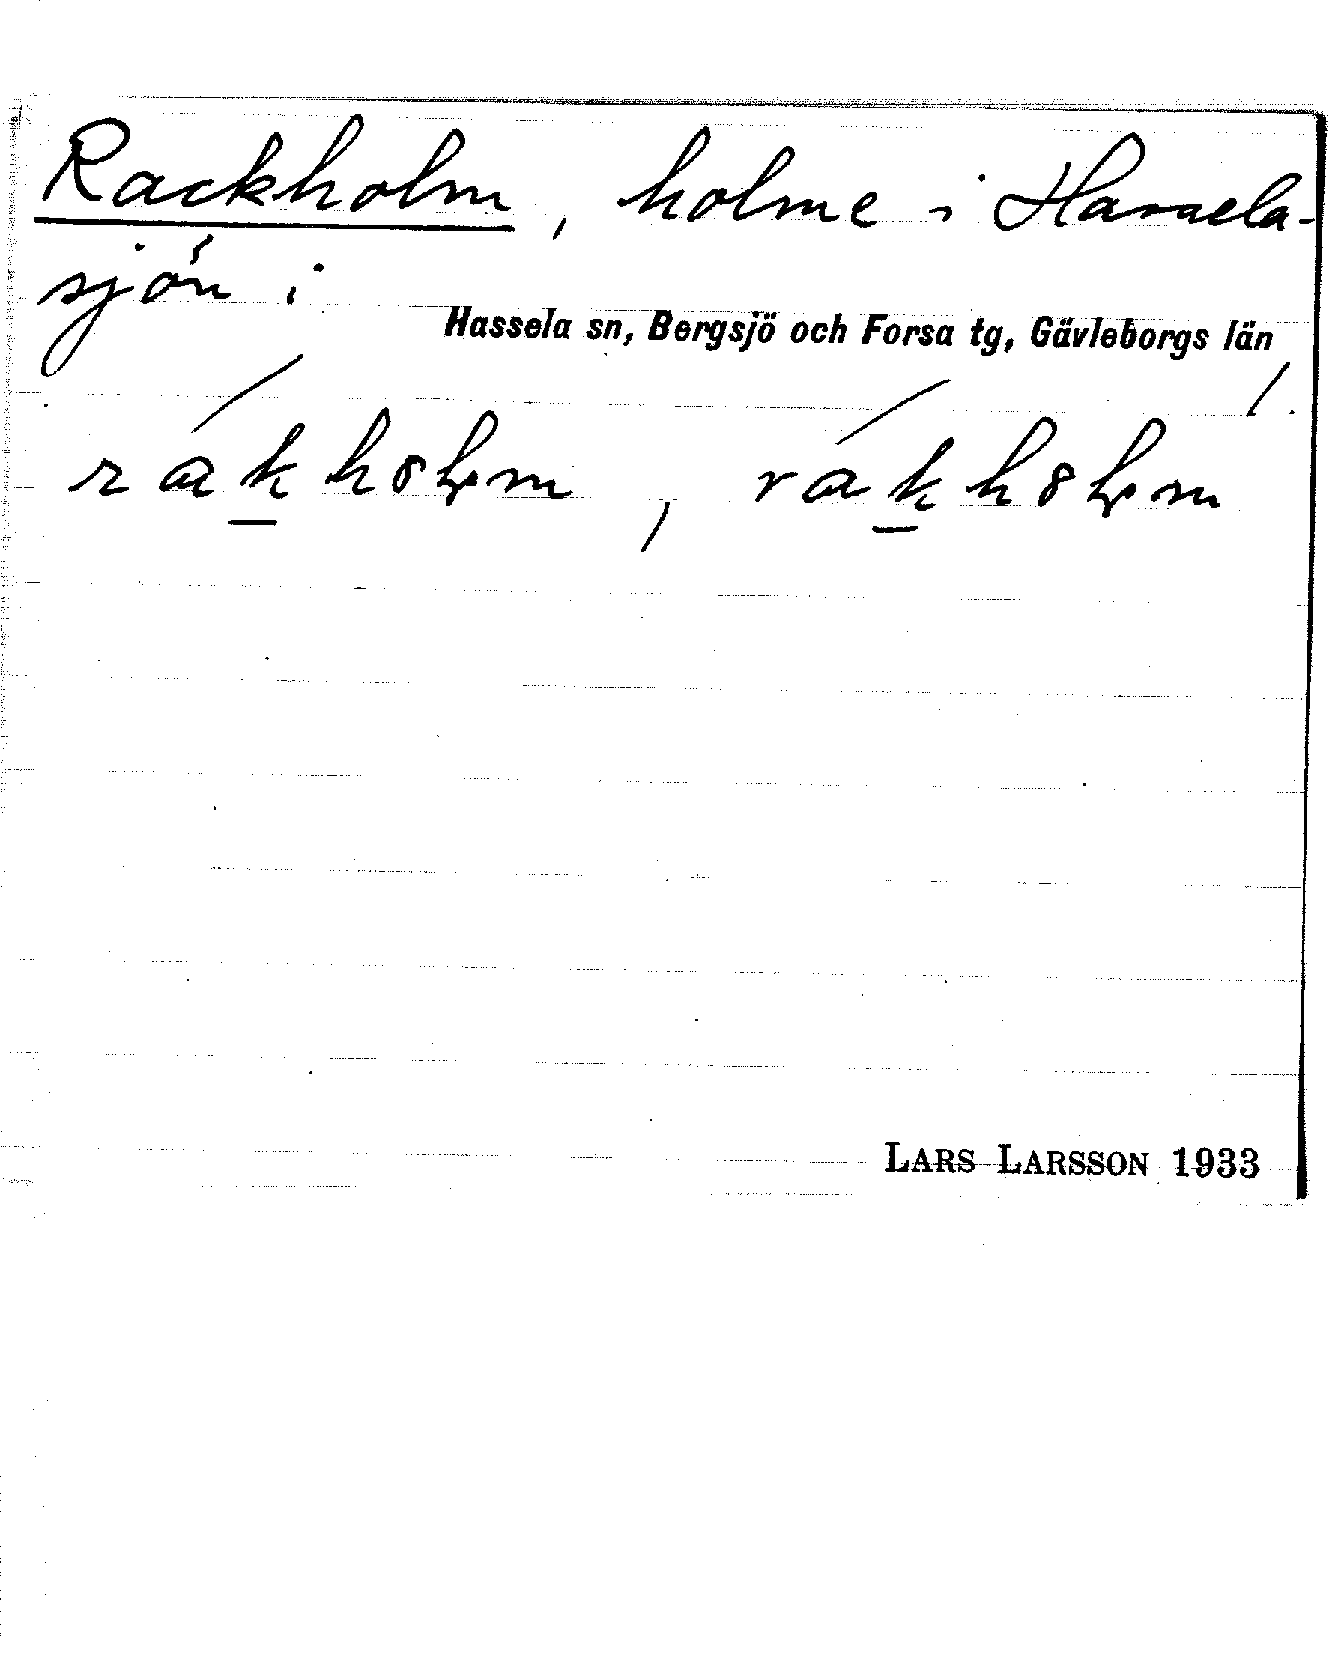 Rackholm, holme i Hassela-
sjön i
Hassela sn, Bergsjö och Forsa tg, Gävleborgs län
/.
LARS LARSSON 1933